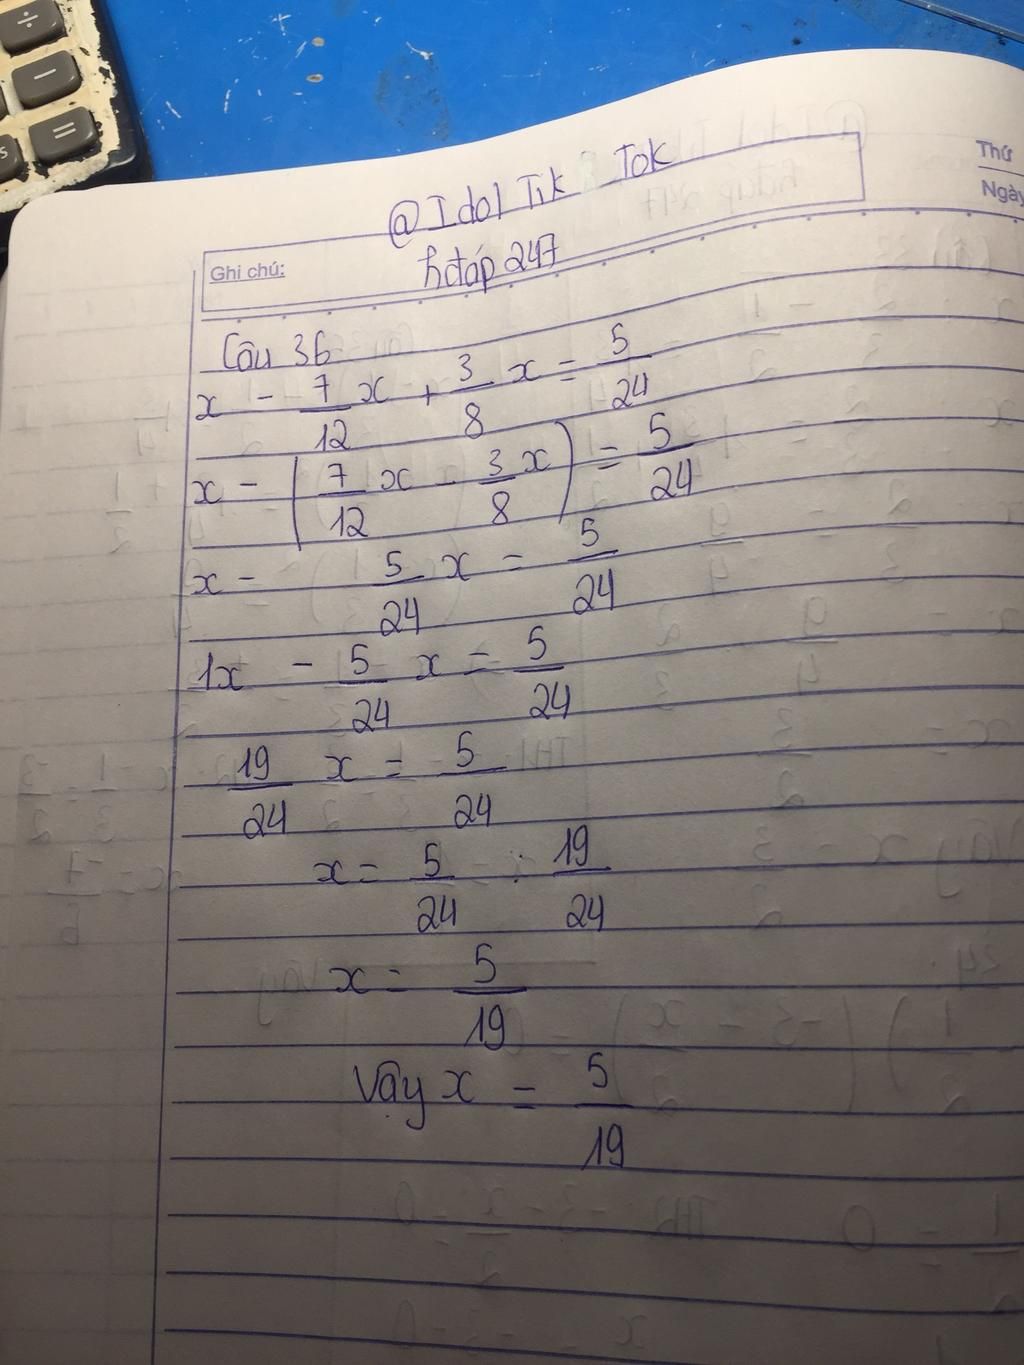 ÷
−
=
S
Thứ
Ngày
@Idol Tik Tok
Ghi chú: hđáp 247
Câu 36
x - 7/12 x + 3/8 x = 5/24
x - (7/12 x - 3/8 x) = 5/24
x - 5/24 x = 5/24
1x - 5/24 x = 5/24
19/24 x = 5/24
x = 5/24 : 19/24
x = 5/19
Vậy x = 5/19